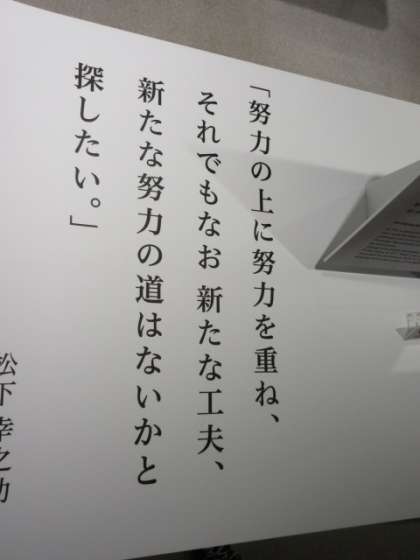 「努力の上に努力を重ね、
それでもなお 新たな工夫、
新たな努力の道はないかと
探したい。」
松下幸之助